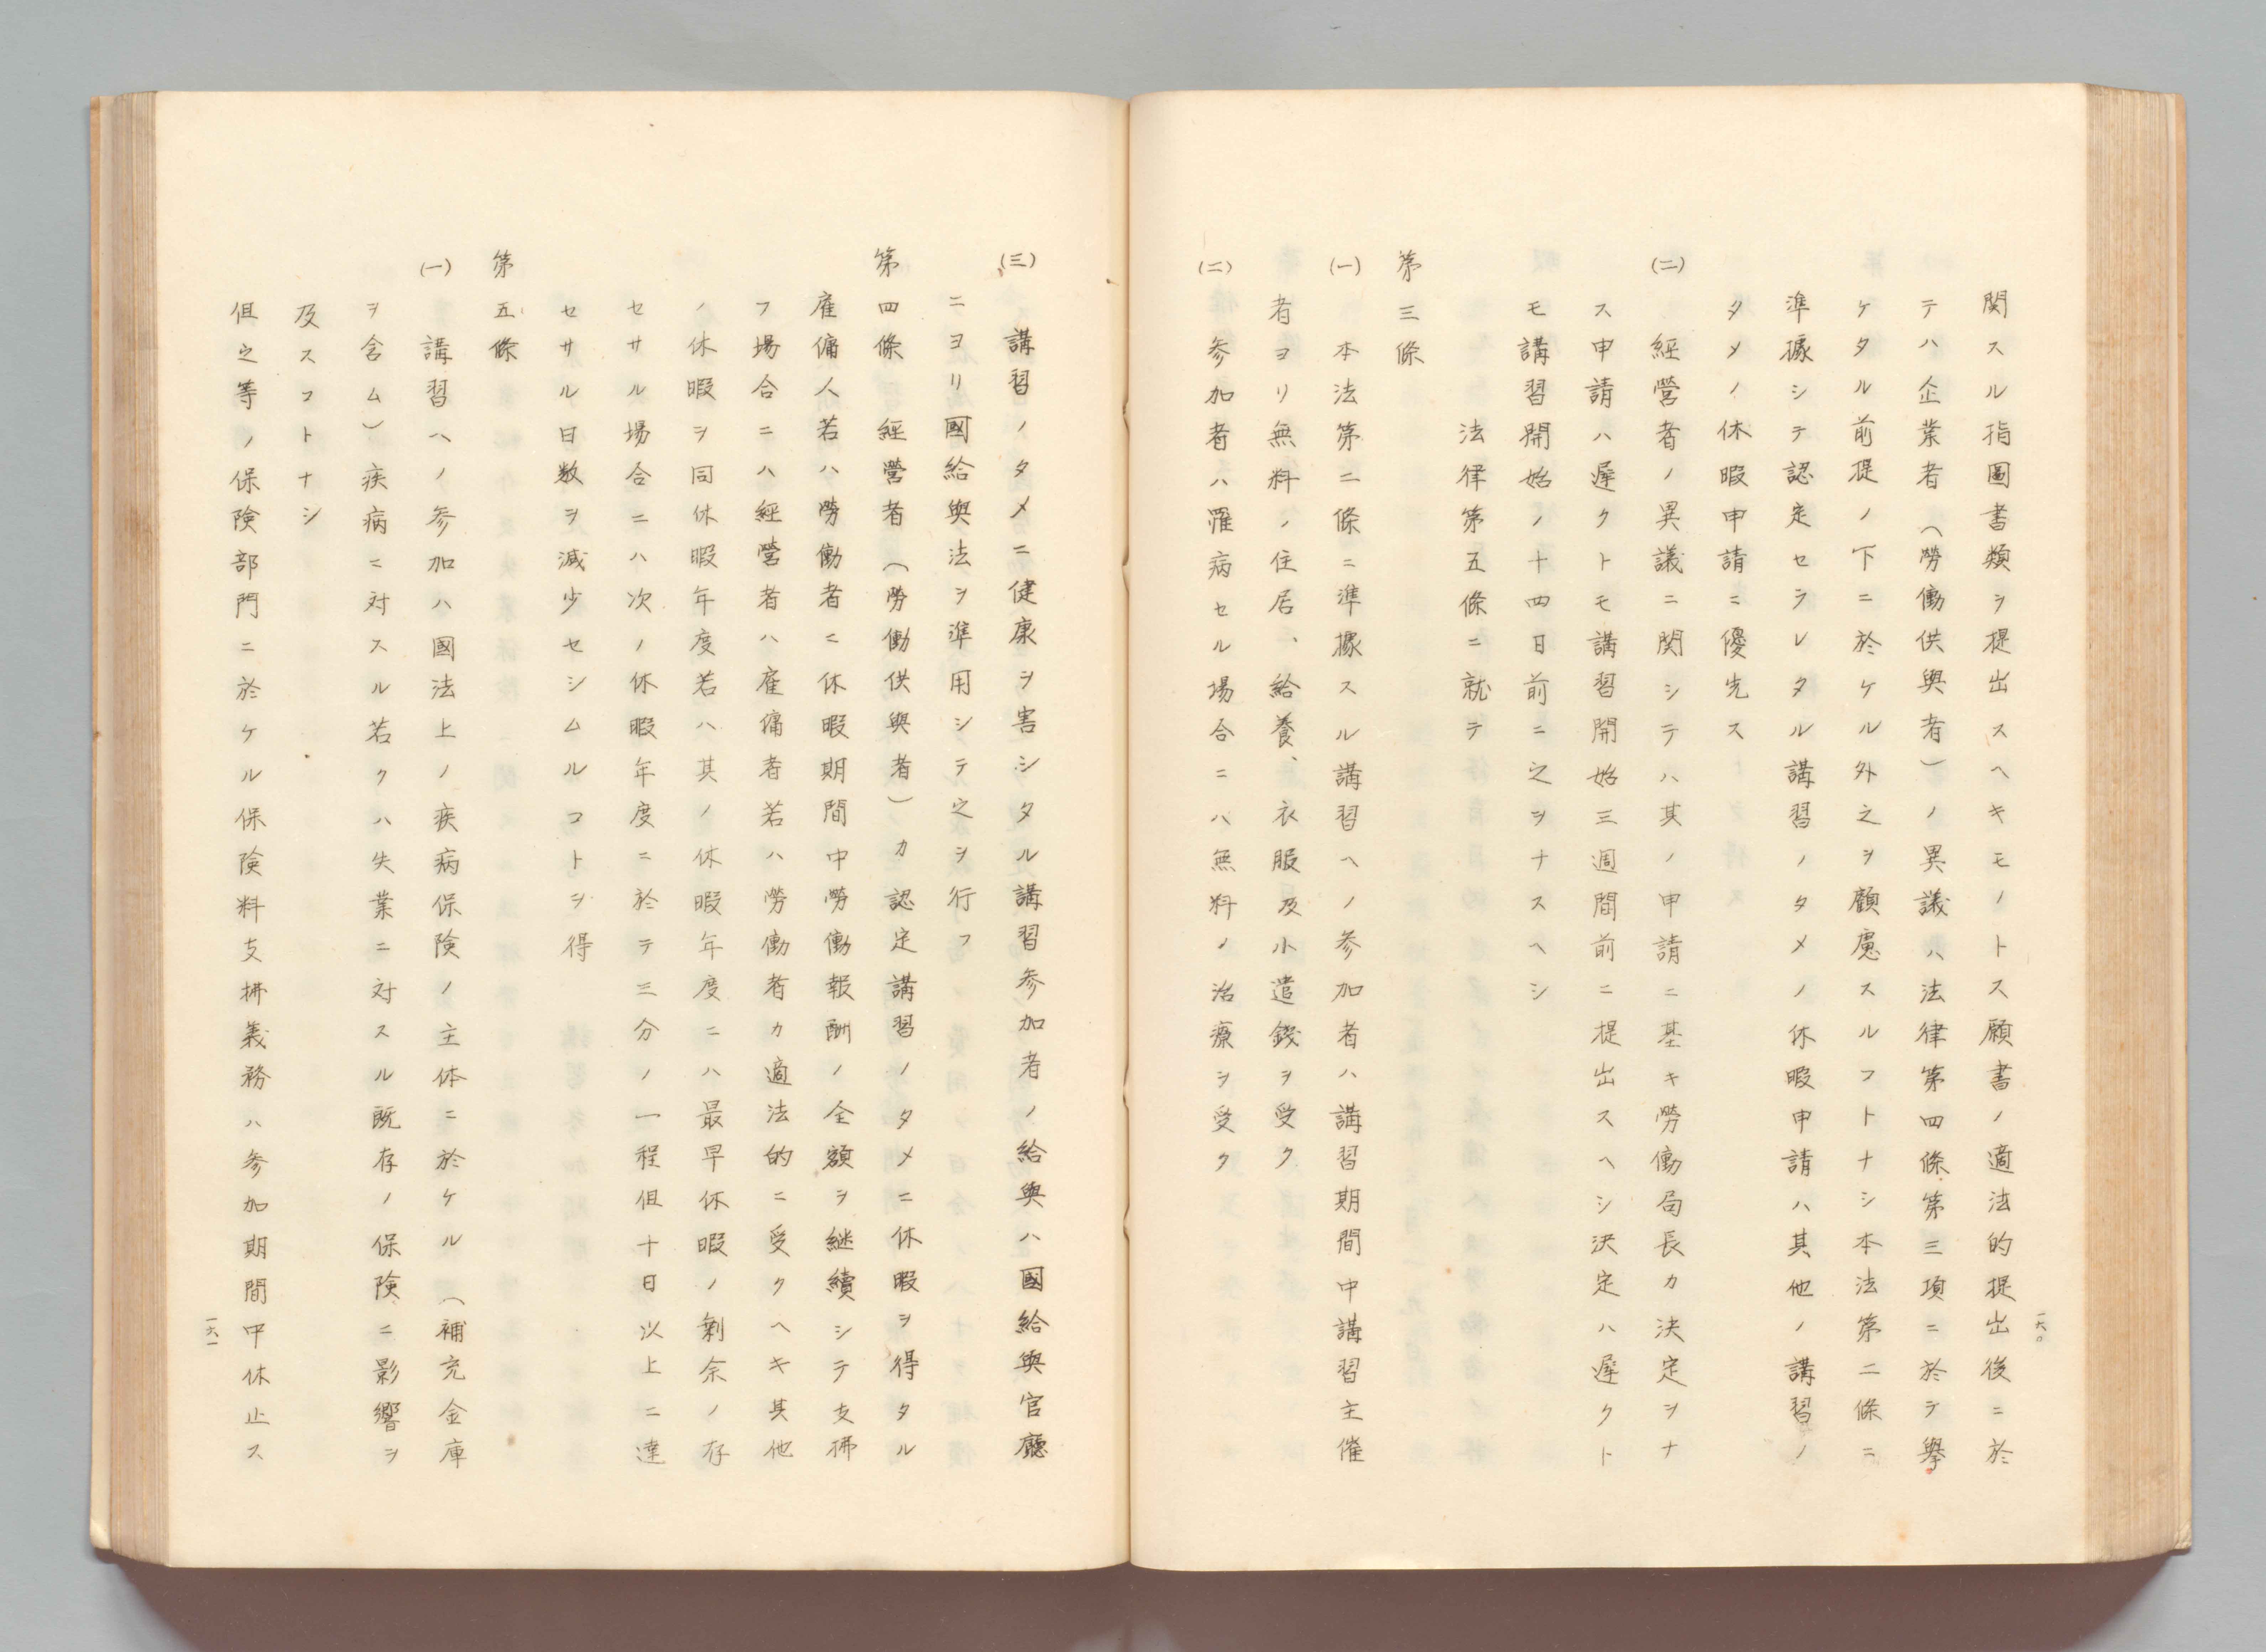 関スル指圖書類ヲ提出スヘキモノトス願書ノ適法的提出後ニ於
テハ企業者（勞働供與者）ノ異議ハ法律第四條第三項ニ於テ擧
ケタル前提ノ下ニ於ケル外之ヲ顧慮スルコトナシ本法第二條ニ
準據シテ認定セラレタル講習ノタメノ休暇申請ハ其他ノ講習ノ
タメノ休暇申請ニ優先ス
(二)　經營者ノ異議ニ関シテハ其ノ申請ニ基キ勞働局長カ決定ヲナ
ス申請ハ遲クトモ講習開始三週間前ニ提出スヘシ決定ハ遲クト
モ講習開始ノ十四日前ニ之ヲナスヘシ
法律第五條ニ就テ
第三條
(一)　本法第二條ニ準據スル講習ヘノ参加者ハ講習期間中講習主催
者ヨリ無料ノ住居、給養、衣服及小遣錢ヲ受ク
(二)　参加者ハ罹病セル場合ニハ無料ノ治療ヲ受ク
一六〇
(三)　講習ノタメニ健康ヲ害シタル講習参加者ノ給與ハ國給與官廳
ニヨリ國給與法ヲ準用シテ之ヲ行フ
第四條　經營者（勞働供與者）カ認定講習ノタメニ休暇ヲ得タル
雇傭人若ハ勞働者ニ休暇期間中勞働報酬ノ全額ヲ継續シテ支拂
フ場合ニハ經營者ハ雇傭者若ハ勞働者カ適法的ニ受クヘキ其他
ノ休暇ヲ同休暇年度若ハ其ノ休暇年度ニハ最早休暇ノ剰余ノ存
セサル場合ニハ次ノ休暇年度ニ於テ三分ノ一程但十日以上ニ達
セサル日数ヲ減少セシムルコトヲ得
第五條
(一)　講習ヘノ参加ハ國法上ノ疾病保険ノ主体ニ於ケル（補充金庫
ヲ含ム）疾病ニ対スル若クハ失業ニ対スル既存ノ保険ニ影響ヲ
及スコトナシ
但之等ノ保険部門ニ於ケル保険料支拂義務ハ参加期間中休止ス
一六一